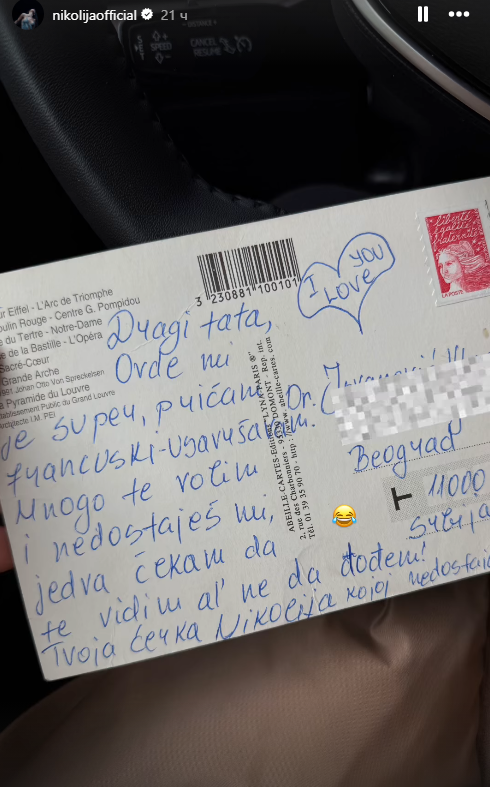 nikolijaofficial 21 ч
SPEED
CANCEL
RESUME
DISTANCE
3 230881 100101
I LOVE YOU
liberté
égalité
fraternité
LA POSTE
Eiffel - L'Arc de Triomphe
Rouge - Centre G. Pompidou
du Tertre - Notre-Dame
de la Bastille - L'Opéra
Sacré-Cœur
Grande Arche
Johan Otto Von Spreckelsen
Pyramide du Louvre
Etablissement Public du Grand Louvre
Architecte I.M. PEI
Dragi tata,
Ovde mi
je super, pričam
francuski-usavršavam.
Mnogo te volim
i nedostaješ mi,
jedva čekam da
te vidim al' ne da dođem!
Tvoja ćerka Nikolija kojoj nedostaje
ABEILLE-CARTES-Editions "LYNA-PARIS"®
2, rue des Charbonniers - 95330 DOMONT - Rep. int.
Tél. 01 39 35 90 70 - http://www.abeille-cartes.com
Dr.
Beograd
T 11000
Srbija